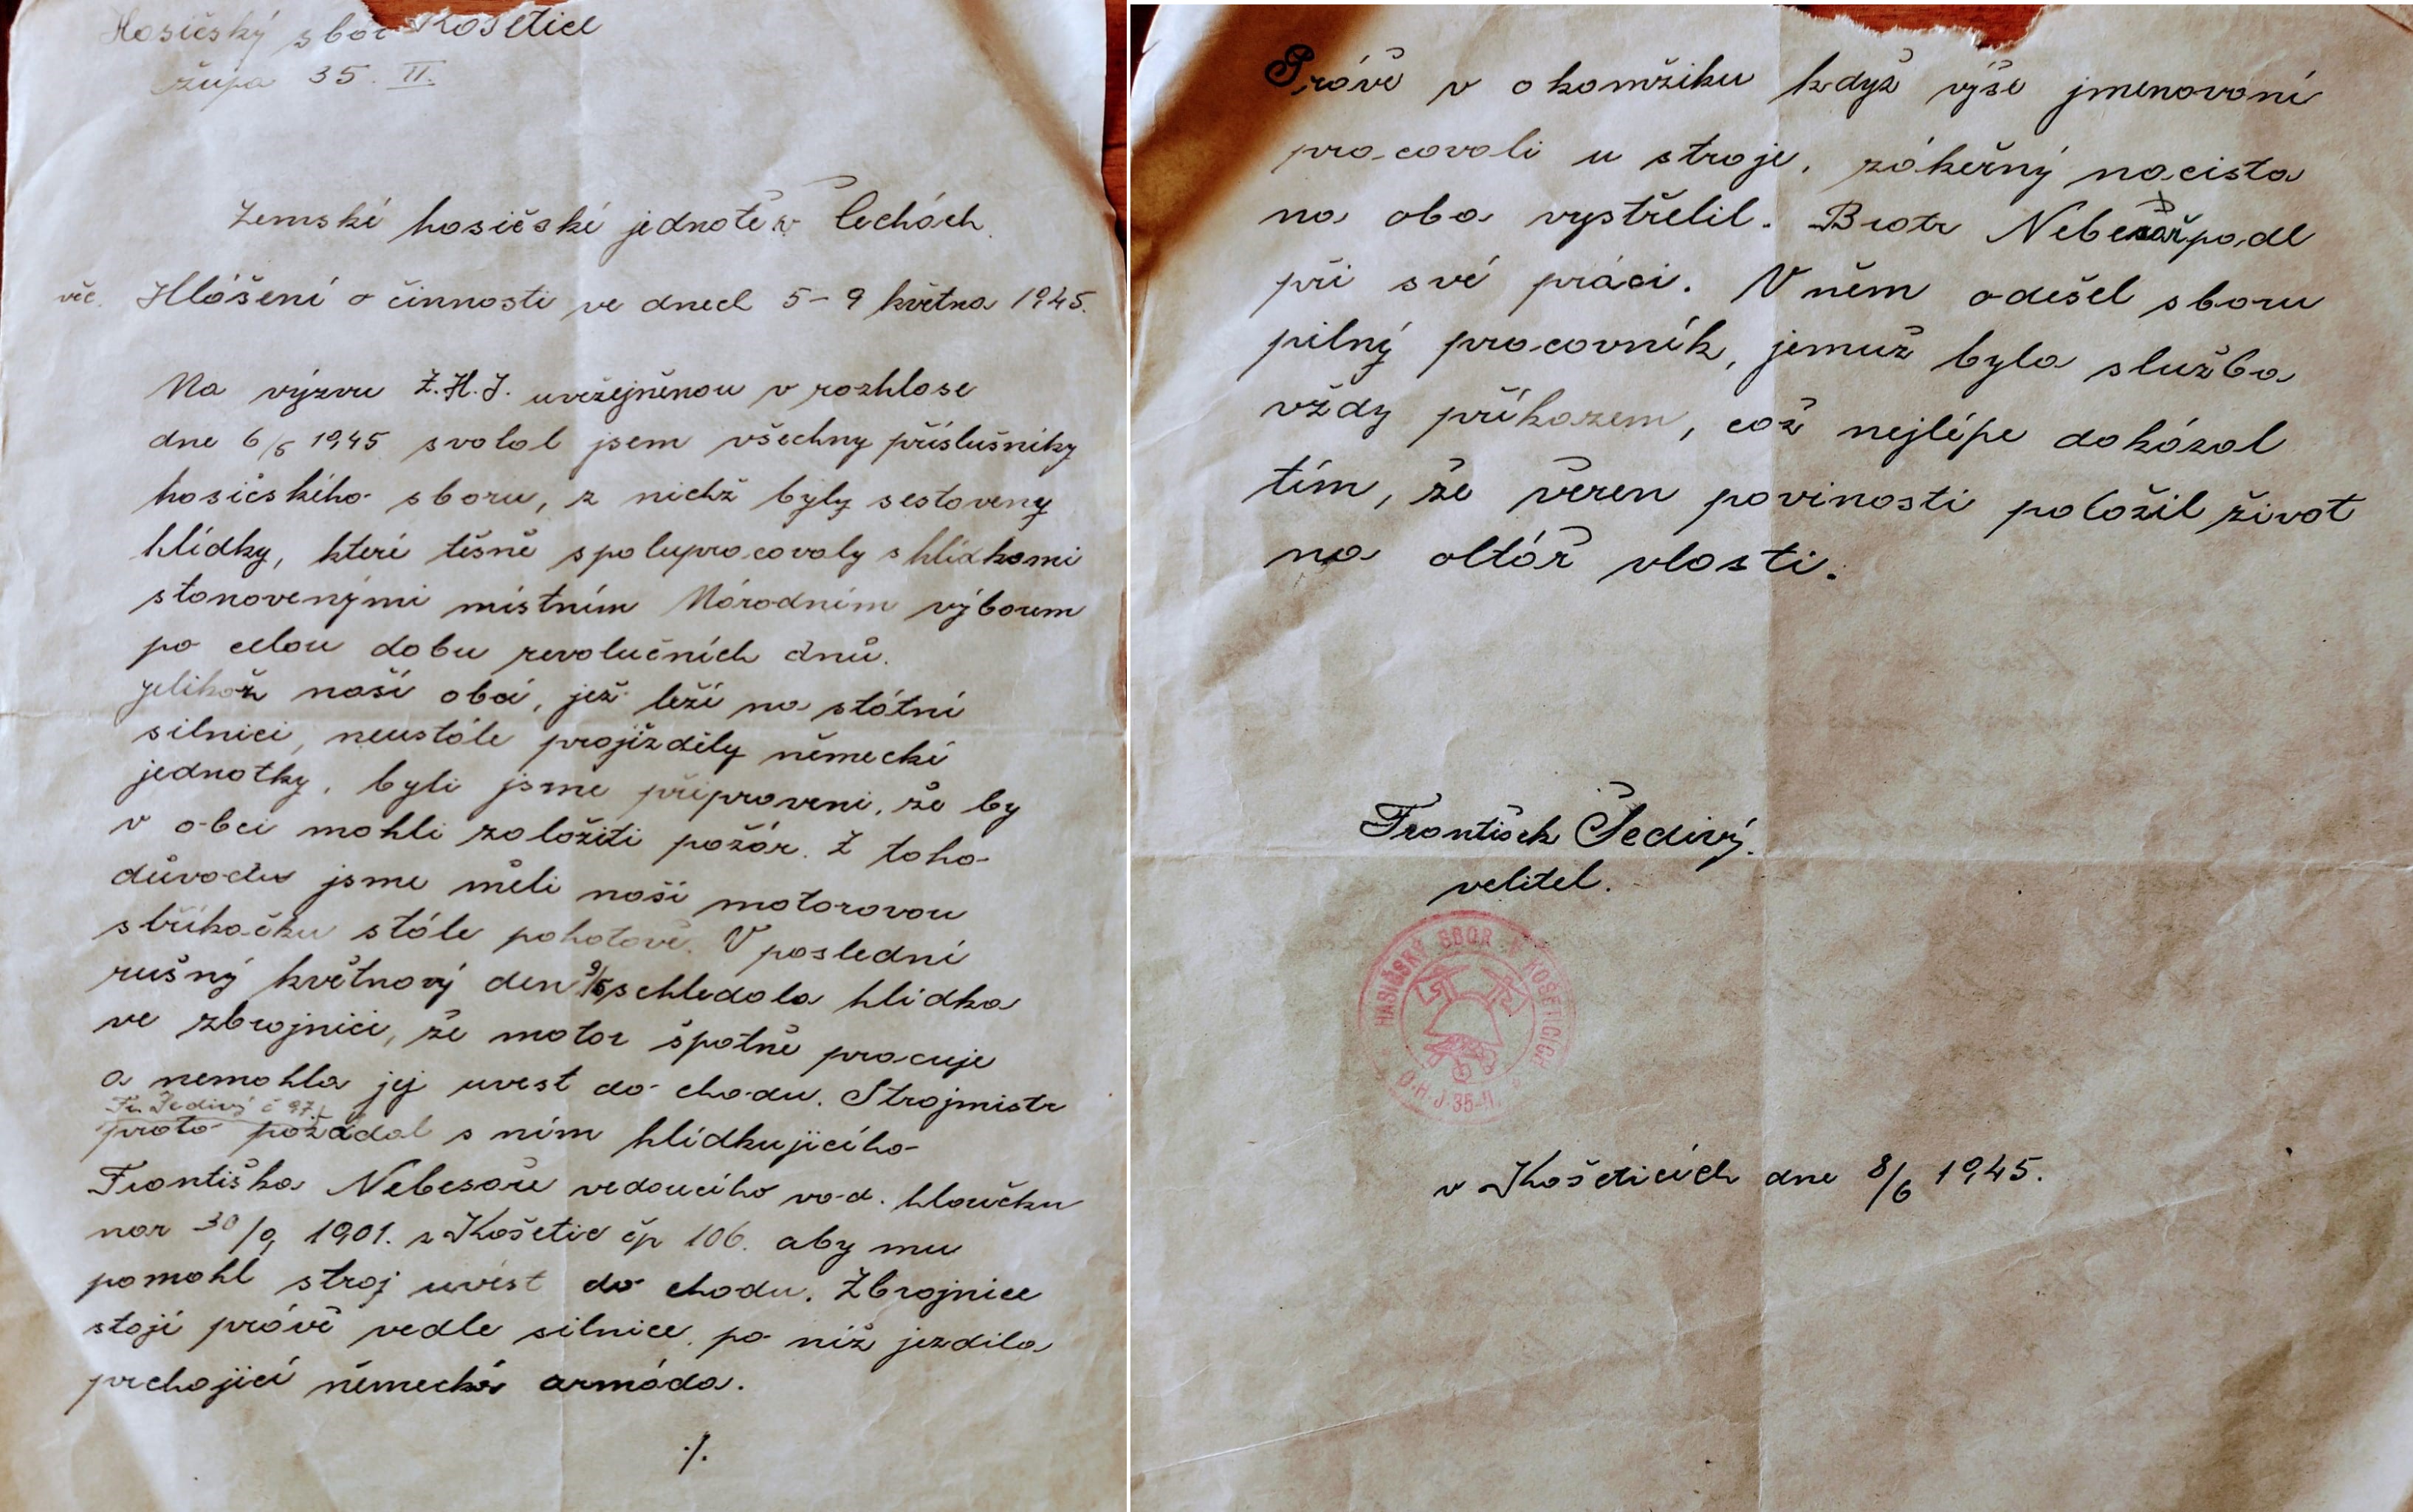 Hasičský sbor Košetice
župa 35. II.
Zemské hasičské jednotě v Čechách.
věc. Hlášení o činnosti ve dnech 5–9 května 1945.
Na výzvu Z.H.J. uveřejněnou v rozhlase
dne 6/5 1945 svolal jsem všechny příslušníky
hasičského sboru, z nichž byly sestaveny
hlídky, které těsně spolupracovaly s hlídkami
stanovenými místním Národním výborem
po celou dobu revolučních dnů.
Jelikož naší obcí, jež leží na státní
silnici, neustále projížděly německé
jednotky, byli jsme připraveni, že by
v obci mohli založiti požár. Z toho
důvodu jsme měli naši motorovou
stříkačku stále pohotově. V poslední
rušný květnový den 9/5 shledala hlídka
ve zbrojnici, že motor špatně pracuje
a nemohla jej uvést do chodu. Strojmistr
Fr. Šedivý č 97.
proto požádal s ním hlídkujícího
Františka Nebesaře vedoucího vod. hloučku
nar 30/9 1901. z Košetic čp 106. aby mu
pomohl stroj uvést do chodu. Zbrojnice
stojí právě vedle silnice, po níž jezdila
prchající německá armáda.
./.
Právě v okamžiku když výše jmenovaní
pracovali u stroje, zákeřný nacista
na oba vystřelil. Bratr Nebesař padl
při své práci. V něm odešel sboru
pilný pracovník, jemuž byla služba
vždy příkazem, což nejlépe dokázal
tím, že věren povinosti položil život
na oltář vlasti.
František Šedivý.
velitel.
HASIČSKÝ SBOR V KOŠETICÍCH
O.H.J. 35-II.
v Košeticích dne 8/6 1945.